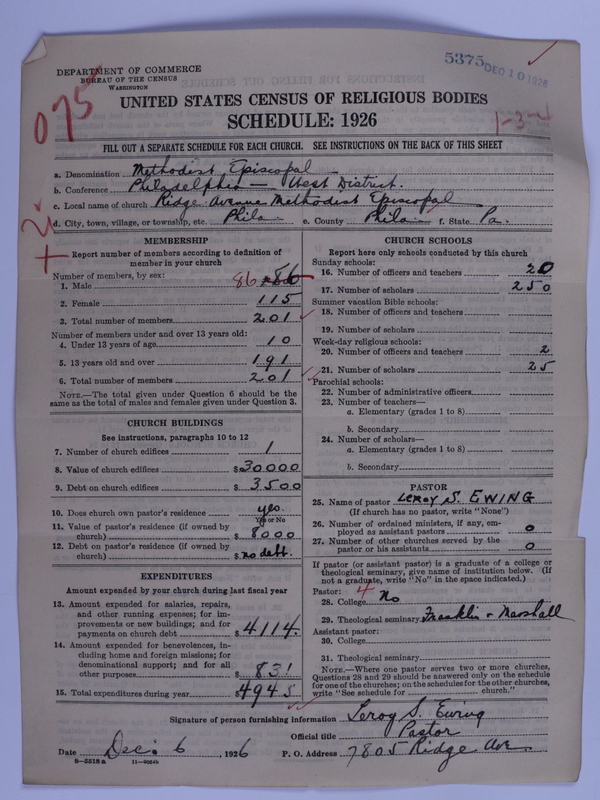 5375 DEC 10 1926
DEPARTMENT OF COMMERCE
BUREAU OF THE CENSUS
WASHINGTON
075
UNITED STATES CENSUS OF RELIGIOUS BODIES
SCHEDULE: 1926
FILL OUT A SEPARATE SCHEDULE FOR EACH CHURCH. SEE INSTRUCTIONS ON THE BACK OF THIS SHEET
a. Denomination Methodist Episcopal
b. Conference Philadelphia — West District.
c. Local name of church Ridge Avenue Methodist Episcopal
d. City, town, village, or township, etc. Phila e. County Phila f. State Pa.
MEMBERSHIP
Report number of members according to definition of
member in your church
Number of members, by sex:
1. Male 86 86
2. Female 115
3. Total number of members 201
Number of members under and over 13 years old:
4. Under 13 years of age 10
5. 13 years old and over 191
6. Total number of members 201
NOTE.—The total given under Question 6 should be
same as the total of males and females given under Question 3.
CHURCH BUILDINGS
See instructions, paragraphs 10 to 12
7. Number of church edifices 1
8. Value of church edifices $30000
9. Debt on church edifices $3500
10. Does church own pastor's residence yes.
Yes or No
11. Value of pastor's residence (if owned by
church) $8000
12. Debt on pastor's residence (if owned by
church) $no debt.
EXPENDITURES
Amount expended by your church during last fiscal year
13. Amount expended for salaries, repairs,
and other running expenses; for im-
provements or new buildings; and for
payments on church debt $4114.
14. Amount expended for benevolences, in-
cluding home and foreign missions; for
denominational support; and for all
other purposes $831
15. Total expenditures during year $4945
CHURCH SCHOOLS
Report here only schools conducted by this church
Sunday schools:
16. Number of officers and teachers 20
17. Number of scholars 250
Summer vacation Bible schools:
18. Number of officers and teachers
19. Number of scholars
Week-day religious schools:
20. Number of officers and teachers 2
21. Number of scholars 25
Parochial schools:
22. Number of administrative officers
23. Number of teachers—
a. Elementary (grades 1 to 8)
b. Secondary
24. Number of scholars—
a. Elementary (grades 1 to 8)
b. Secondary
PASTOR
25. Name of pastor Leroy S. EWING
(If church has no pastor, write "None")
26. Number of ordained ministers, if any, em-
ployed as assistant pastors 0
27. Number of other churches served by the
pastor or his assistants 0
If pastor (or assistant pastor) is a graduate of a college or
theological seminary, give name of institution below. (If
not a graduate, write "No" in the space indicated.)
Pastor:
28. College No
29. Theological seminary Franklin & Marshall
Assistant pastor:
30. College
31. Theological seminary
NOTE.—Where one pastor serves two or more churches,
Questions 28 and 29 should be answered only on the schedule
for one of the churches; on the schedules for the other churches,
write "See schedule for church."
Signature of person furnishing information Leroy S. Ewing
Official title Pastor
Date Dec. 6, 1926 P. O. Address 7805 Ridge Ave
8—5518a